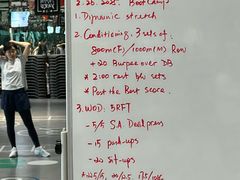 2.26.2025. Boot Camp
1. Dynamic stretch
2. Conditioning. 3 sets of:
800m(F)/1000m(M) Row
+ 20 Burpee over DB
* 2:00 rest b/w sets
* Post the Best score.
3. WOD: 5RFT
- 5/5 S.A. Devil press
- 15 push-ups
- 20 sit-ups